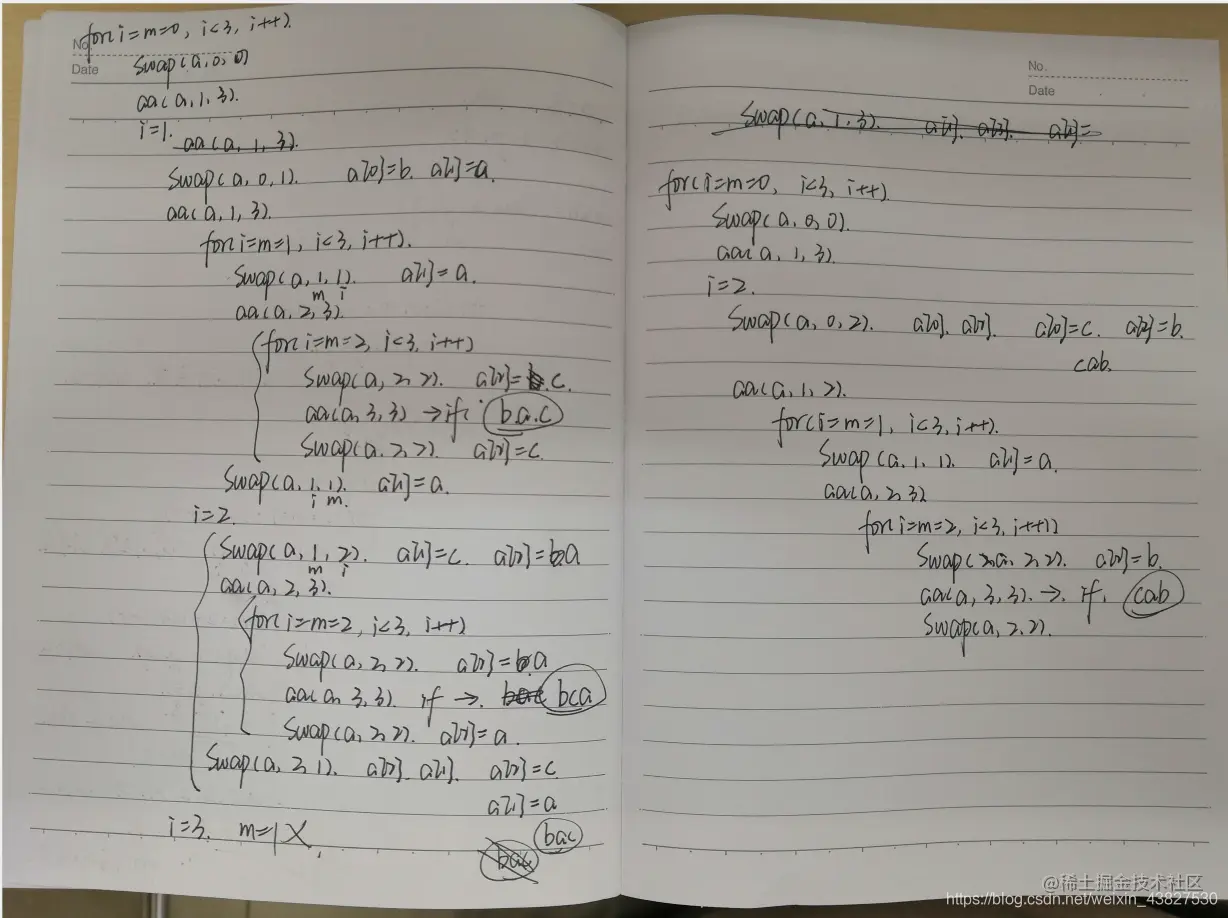 for(i=m=0, i<3, i++).
No.
Date
Swap(a,0,0)
aa(a,1,3).
i=1.
aa(a,1,3).
Swap(a,0,1). a[0]=b. a[1]=a.
aa(a,1,3).
for(i=m=1, i<3, i++).
Swap(a,1,1). a[1]=a.
m i
aa(a,2,3).
for(i=m=2, i<3, i++)
Swap(a,2,2). a[2]=c.
aa(a,3,3) →if. b.a.c
Swap(a.2,2). a[2]=c.
Swap(a,1,1). a[1]=a.
i m.
i=2.
Swap(a,1,2). a[1]=c. a[2]=a
m i
aa(a,2,3).
for(i=m=2, i<3, i++)
Swap(a,2,2). a[2]=a
aa(a,3,3). if →. bac bca
Swap(a,2,2). a[2]=a.
Swap(a,2,1). a[2]. a[1]. a[2]=c.
a[1]=a
i=3. m=1 X.
bac
bac
No.
Date
Swap(a,1,3). a[1]. a[3]. a[1]=
for(i=m=0, i<3, i++).
Swap(a,0,0).
aa(a,1,3).
i=2.
Swap(a,0,2). a[0]. a[2]. a[0]=c. a[2]=b.
cab.
aa(a,1,2).
for(i=m=1, i<3, i++).
Swap(a,1,1). a[1]=a.
aa(a,2,3)
for(i=m=2, i<3, i++)
Swap(a,2,2). a[2]=b.
aa(a,3,3). →. if. cab
Swap(a,2.2).
@稀土掘金技术社区
https://blog.csdn.net/weixin_43827530